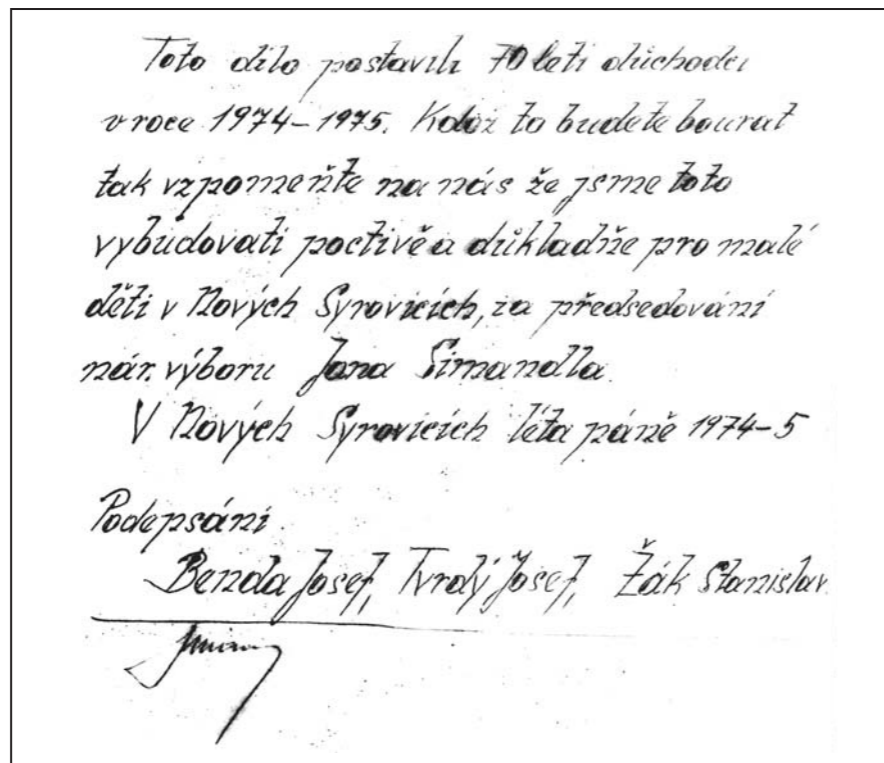 Toto dílo postavili 70 letí důchodci
v roce 1974-1975. Kdož to budete bourat
tak vzpomeňte na nás že jsme toto
vybudovali poctivě a důkladňe pro malé
děti v Nových Syrovicích, za předsedování
nár. výboru Jana Simandla.
V Nových Syrovicích léta páně 1974-5
Podepsáni
Benda Josef, Tvrdý Josef, Žák Stanislav.